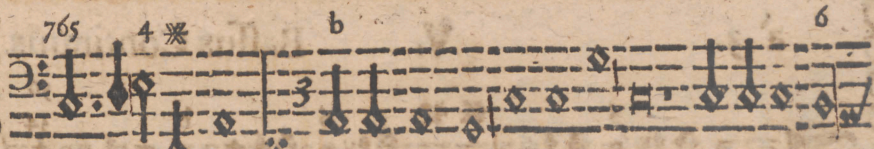 765 4 ※ b 6
3